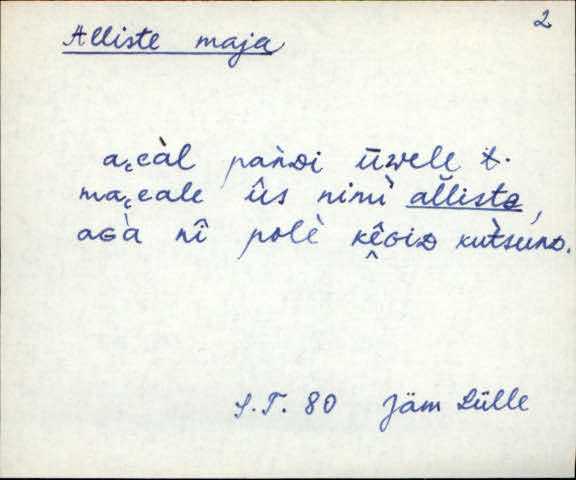 2
Alliste maja
a꜀càl pàǹᴅi ǖwele t.
ma꜀cale ûs nimì alliste,
aɢà nî polè kê̬ɢiᴅ kutsunᴅ.
S.T. 80 Jäm Lülle